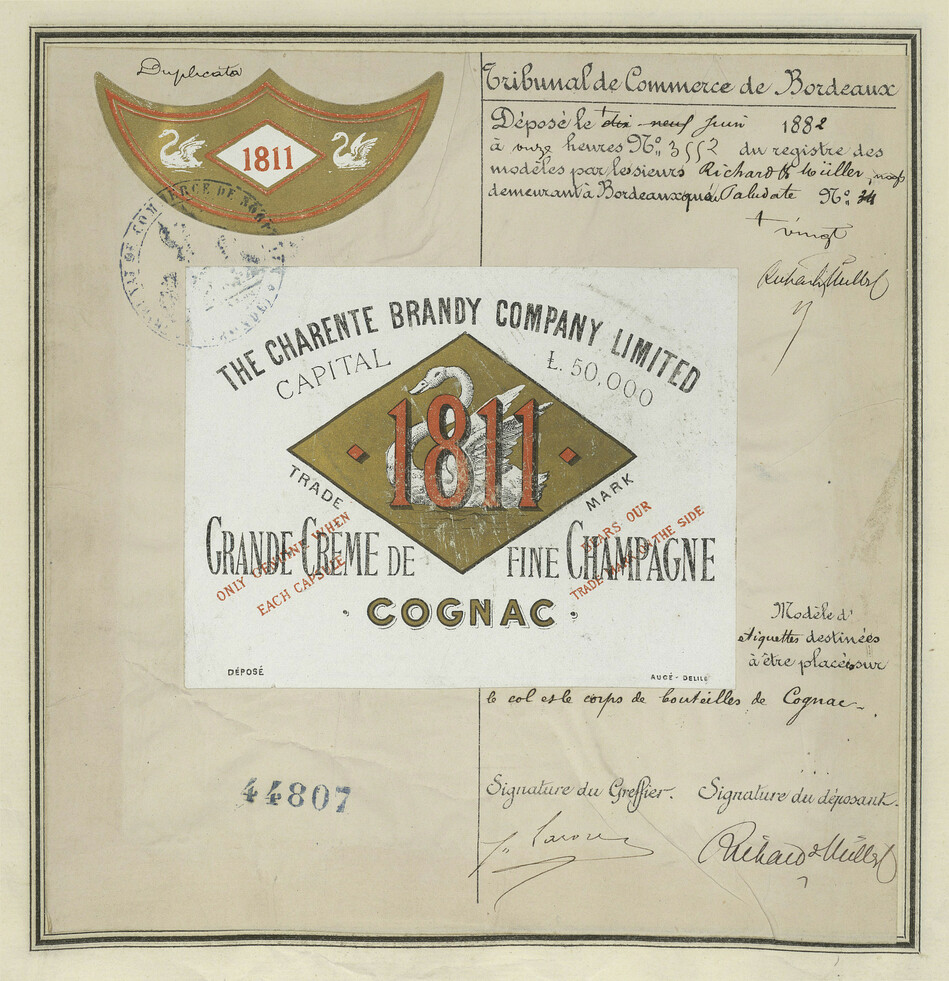 Duplicata
1811
Tribunal de Commerce de Bordeaux
Déposé le dix-neuf Juin 1882
à onze heures No. 3552 du registre des
modèles par les sieurs Richard & Müller,
demeurant à Bordeaux quai Paludate No. 34
+ vingt
Richard & Müller
THE CHARENTE BRANDY COMPANY LIMITED
CAPITAL £. 50,000
1811
TRADE MARK
ONLY GENUINE WHEN
EACH CAPSULE
BEARS OUR
TRADE MARK ON THE SIDE
GRANDE CRÈME DE FINE CHAMPAGNE
COGNAC
DÉPOSÉ
AUGÉ - DELILE
Modèle d'
etiquettes destinées
à être placées sur
le col et le corps de bouteilles de Cognac
44807
Signature du Greffier. Signature du déposant.
Richard & Müller